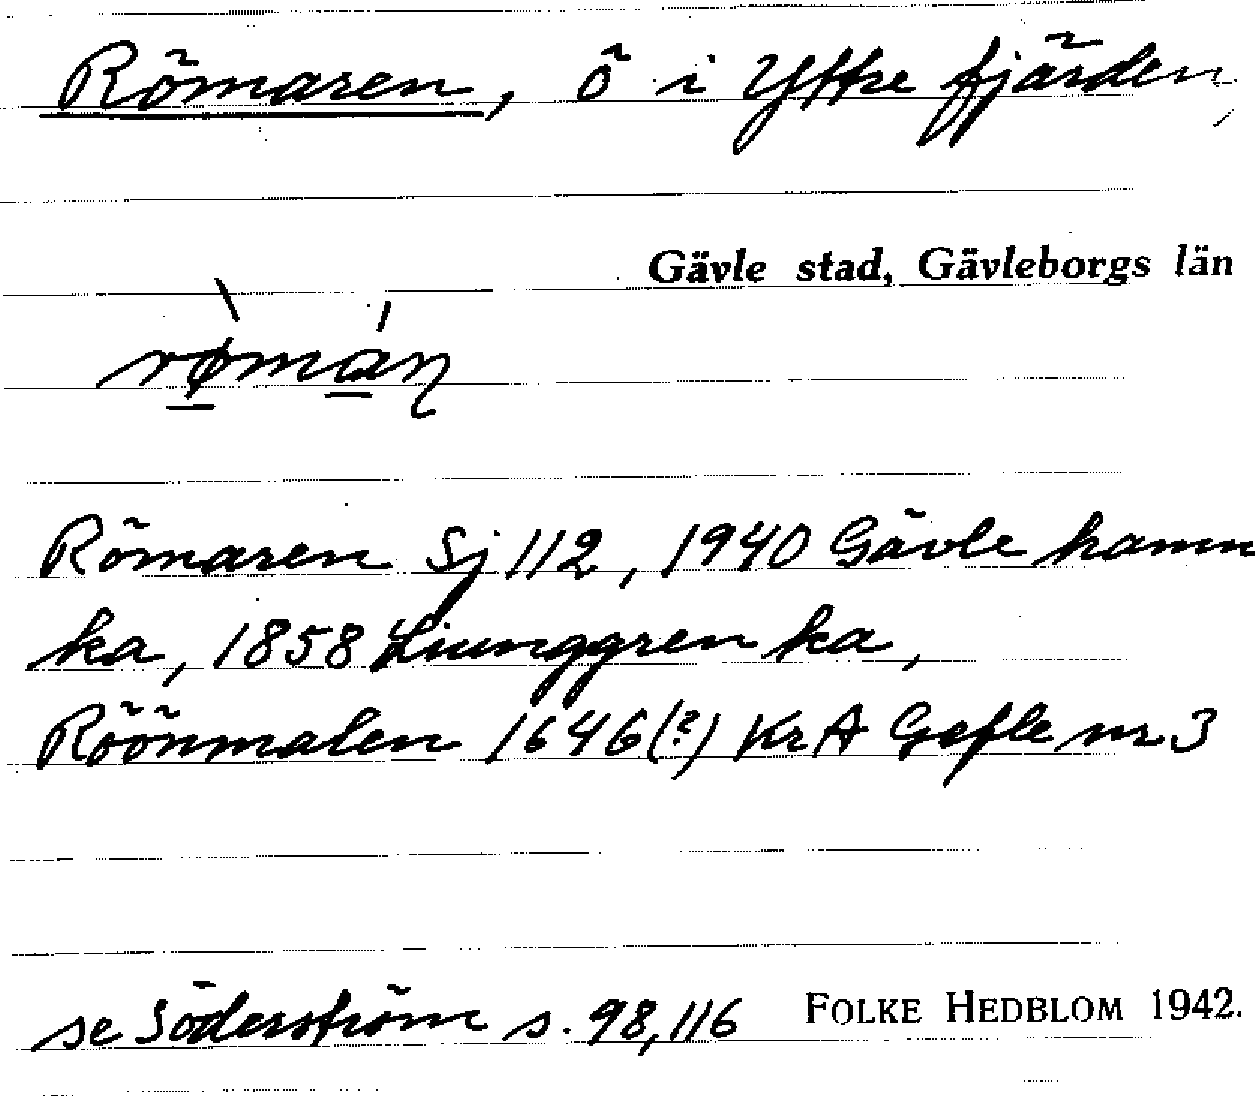 Römaren, ö i Yttre fjärden,
Gävle stad, Gävleborgs län
rø̀mán
Römaren Sj 112, 1940 Gävle hamn
ka, 1858 Liunggren ka,
Röönmalen 1646(?) KrA Gefle nr 3
se Söderström s. 98, 116 FOLKE HEDBLOM 1942.